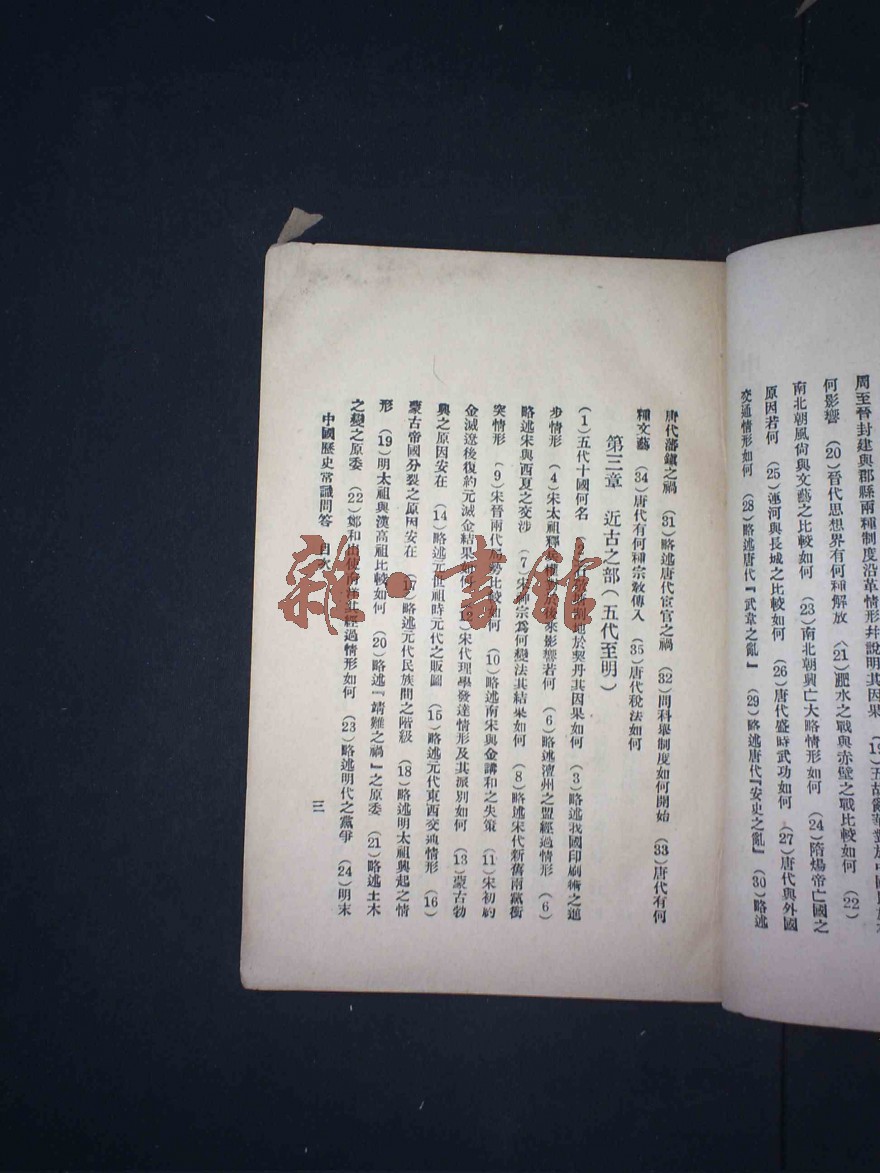 周至晉封建與郡縣兩種制度沿革情形幷說明其因果
何影響 (20)晉代思想界有何種解放 (21)淝水之戰與赤壁之戰比較如何 (22)
南北朝風尙與文藝之比較如何 (23)南北朝興亡大略情形如何 (24)隋煬帝亡國之
原因若何 (25)運河與長城之比較如何 (26)唐代盛時武功如何 (27)唐代與外國
交通情形如何 (28)略述唐代『武韋之亂』 (29)略述唐代『安史之亂』 (30)略述
唐代藩鎭之禍 (31)略述唐代宦官之禍 (32)問科舉制度如何開始 (33)唐代有何
種文藝 (34)唐代有何種宗敎傳入 (35)唐代稅法如何
第三章 近古之部(五代至明)
(1)五代十國何名 (2)石敬瑭割地於契丹其因果如何 (3)略述我國印刷術之進
步情形 (4)宋太祖釋兵權對於後來影響若何 (6)略述澶州之盟經過情形 (6)
略述宋與西夏之交涉 (7)宋神宗爲何變法其結果如何 (8)略述宋代新舊兩黨衝
突情形 (9)宋晉兩代局勢比較如何 (10)略述南宋與金講和之失策 (11)宋初約
金滅遼後復約元滅金結果如何 (12)宋代理學發達情形及其派別如何 (13)蒙古勃
興之原因安在 (14)略述元世祖時元代之版圖 (15)略述元代東西交通情形 (16)
蒙古帝國分裂之原因安在 (17)略述元代民族間之階級 (18)略述明太祖興起之情
形 (19)明太祖與漢高祖比較如何 (20)略述『靖難之禍』之原委 (21)略述土木
之變之原委 (22)鄭和出使南洋其經過情形如何 (23)略述明代之黨爭 (24)明末
中國歷史常識問答 目次
三
雜·書館